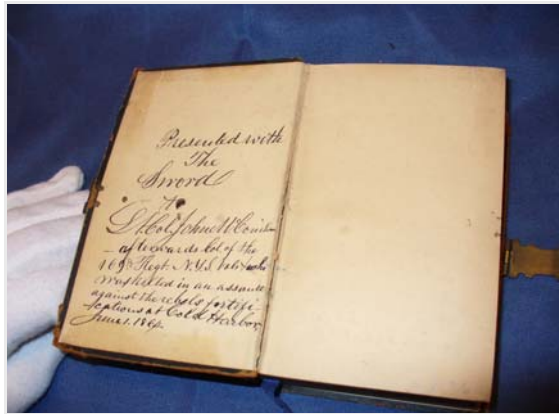 Presented with
The
Sword
To
Lt. Col. John
afterwards Col. of the
169th Regt. N.Y.S. Vols. who
was killed in an assault
against the rebels fortifi
cations at Cold Harbor
June 1. 1864.